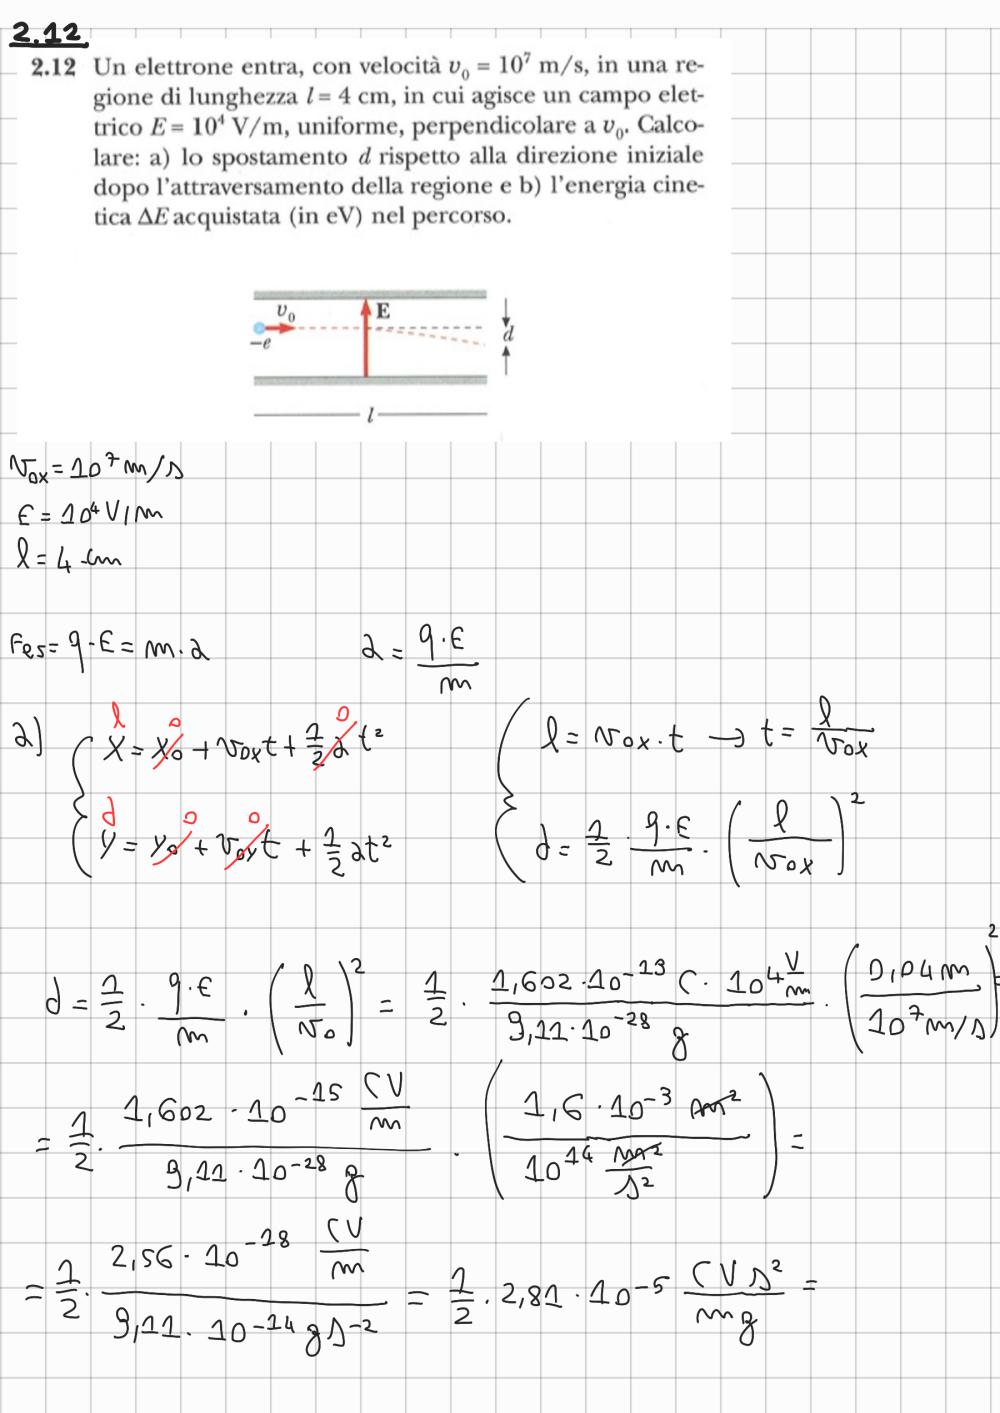 2.12
2.12 Un elettrone entra, con velocità v₀ = 10⁷ m/s, in una re-
gione di lunghezza l = 4 cm, in cui agisce un campo elet-
trico E = 10⁴ V/m, uniforme, perpendicolare a v₀. Calco-
lare: a) lo spostamento d rispetto alla direzione iniziale
dopo l'attraversamento della regione e b) l'energia cine-
tica ΔE acquistata (in eV) nel percorso.
v₀ E
−e d
l
v₀ₓ = 10⁷ m/s
E = 10⁴ V/m
l = 4 cm
Fes = q·E = m·a a = q·E / m
a) l 0 0
x = x₀ + v₀ₓt + 1/2 a t² l = v₀ₓ·t → t = l / v₀ₓ
d 0 0
y = y₀ + v₀yt + 1/2 at² d = 1/2 · q·E / m · (l / v₀ₓ)²
d = 1/2 · q·E / m · (l / v₀)² = 1/2 · 1,602·10⁻¹⁹ C · 10⁴ V/m / 9,11·10⁻²⁸ g · (0,04 m / 10⁷ m/s)² =
= 1/2 · 1,602·10⁻¹⁵ CV/m / 9,11·10⁻²⁸ g · (1,6·10⁻³ m² / 10¹⁴ m²/s²) =
= 1/2 · 2,56·10⁻¹⁸ CV/m / 9,11·10⁻¹⁴ g s⁻² = 1/2 · 2,81·10⁻⁵ CVs² / mg =